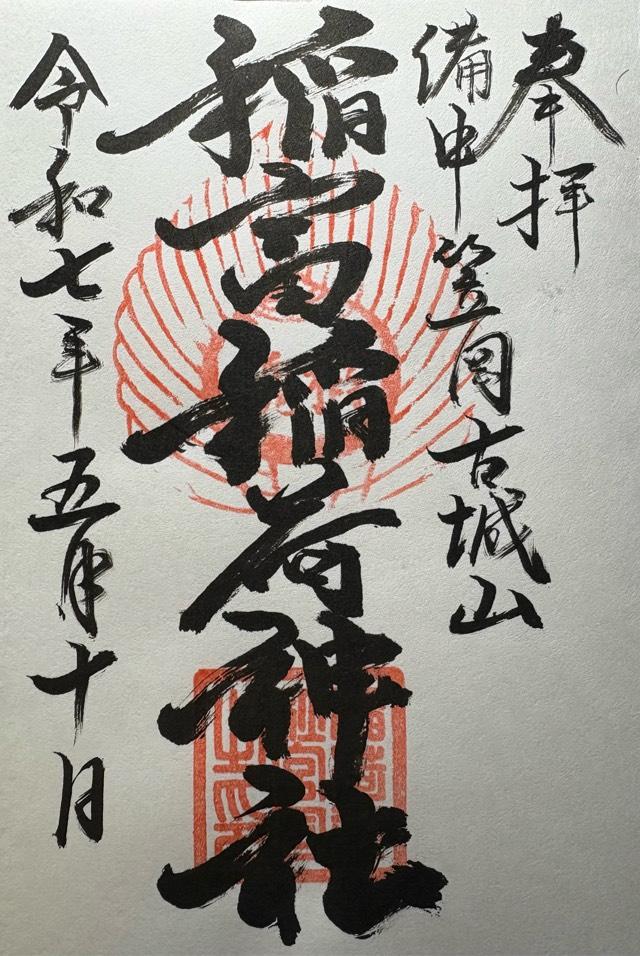 奉拝
備中笠岡古城山
稲富稲荷神社
令和七年五月十日